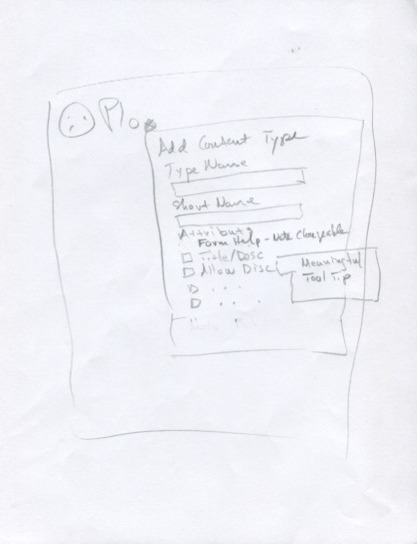 Plo
Add Content Type
Type Name
Short Name
Attributes
Form Help - Note Changeable
Title/Desc
Allow Disc
Meaningful
Tool Tip